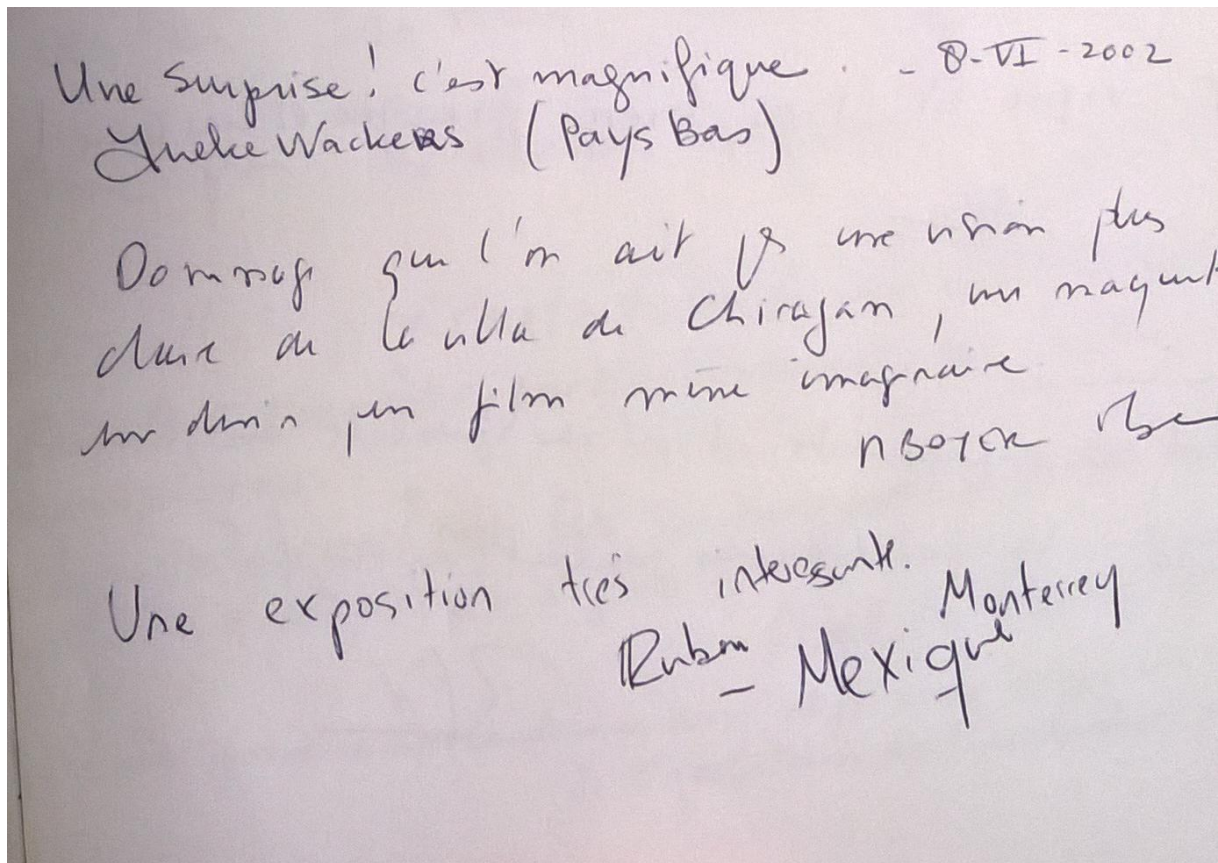 Une Surprise! c'est magnifique. - 8-VI-2002
Ineke Wackers (Pays Bas)
Dommage que l'on ait ps une vision plus
claire de la villa de Chiragan, un maquette
un dessin, un film même imaginaire
N BOYER
Une exposition très interessante.
Monterrey
Ruben - Mexique